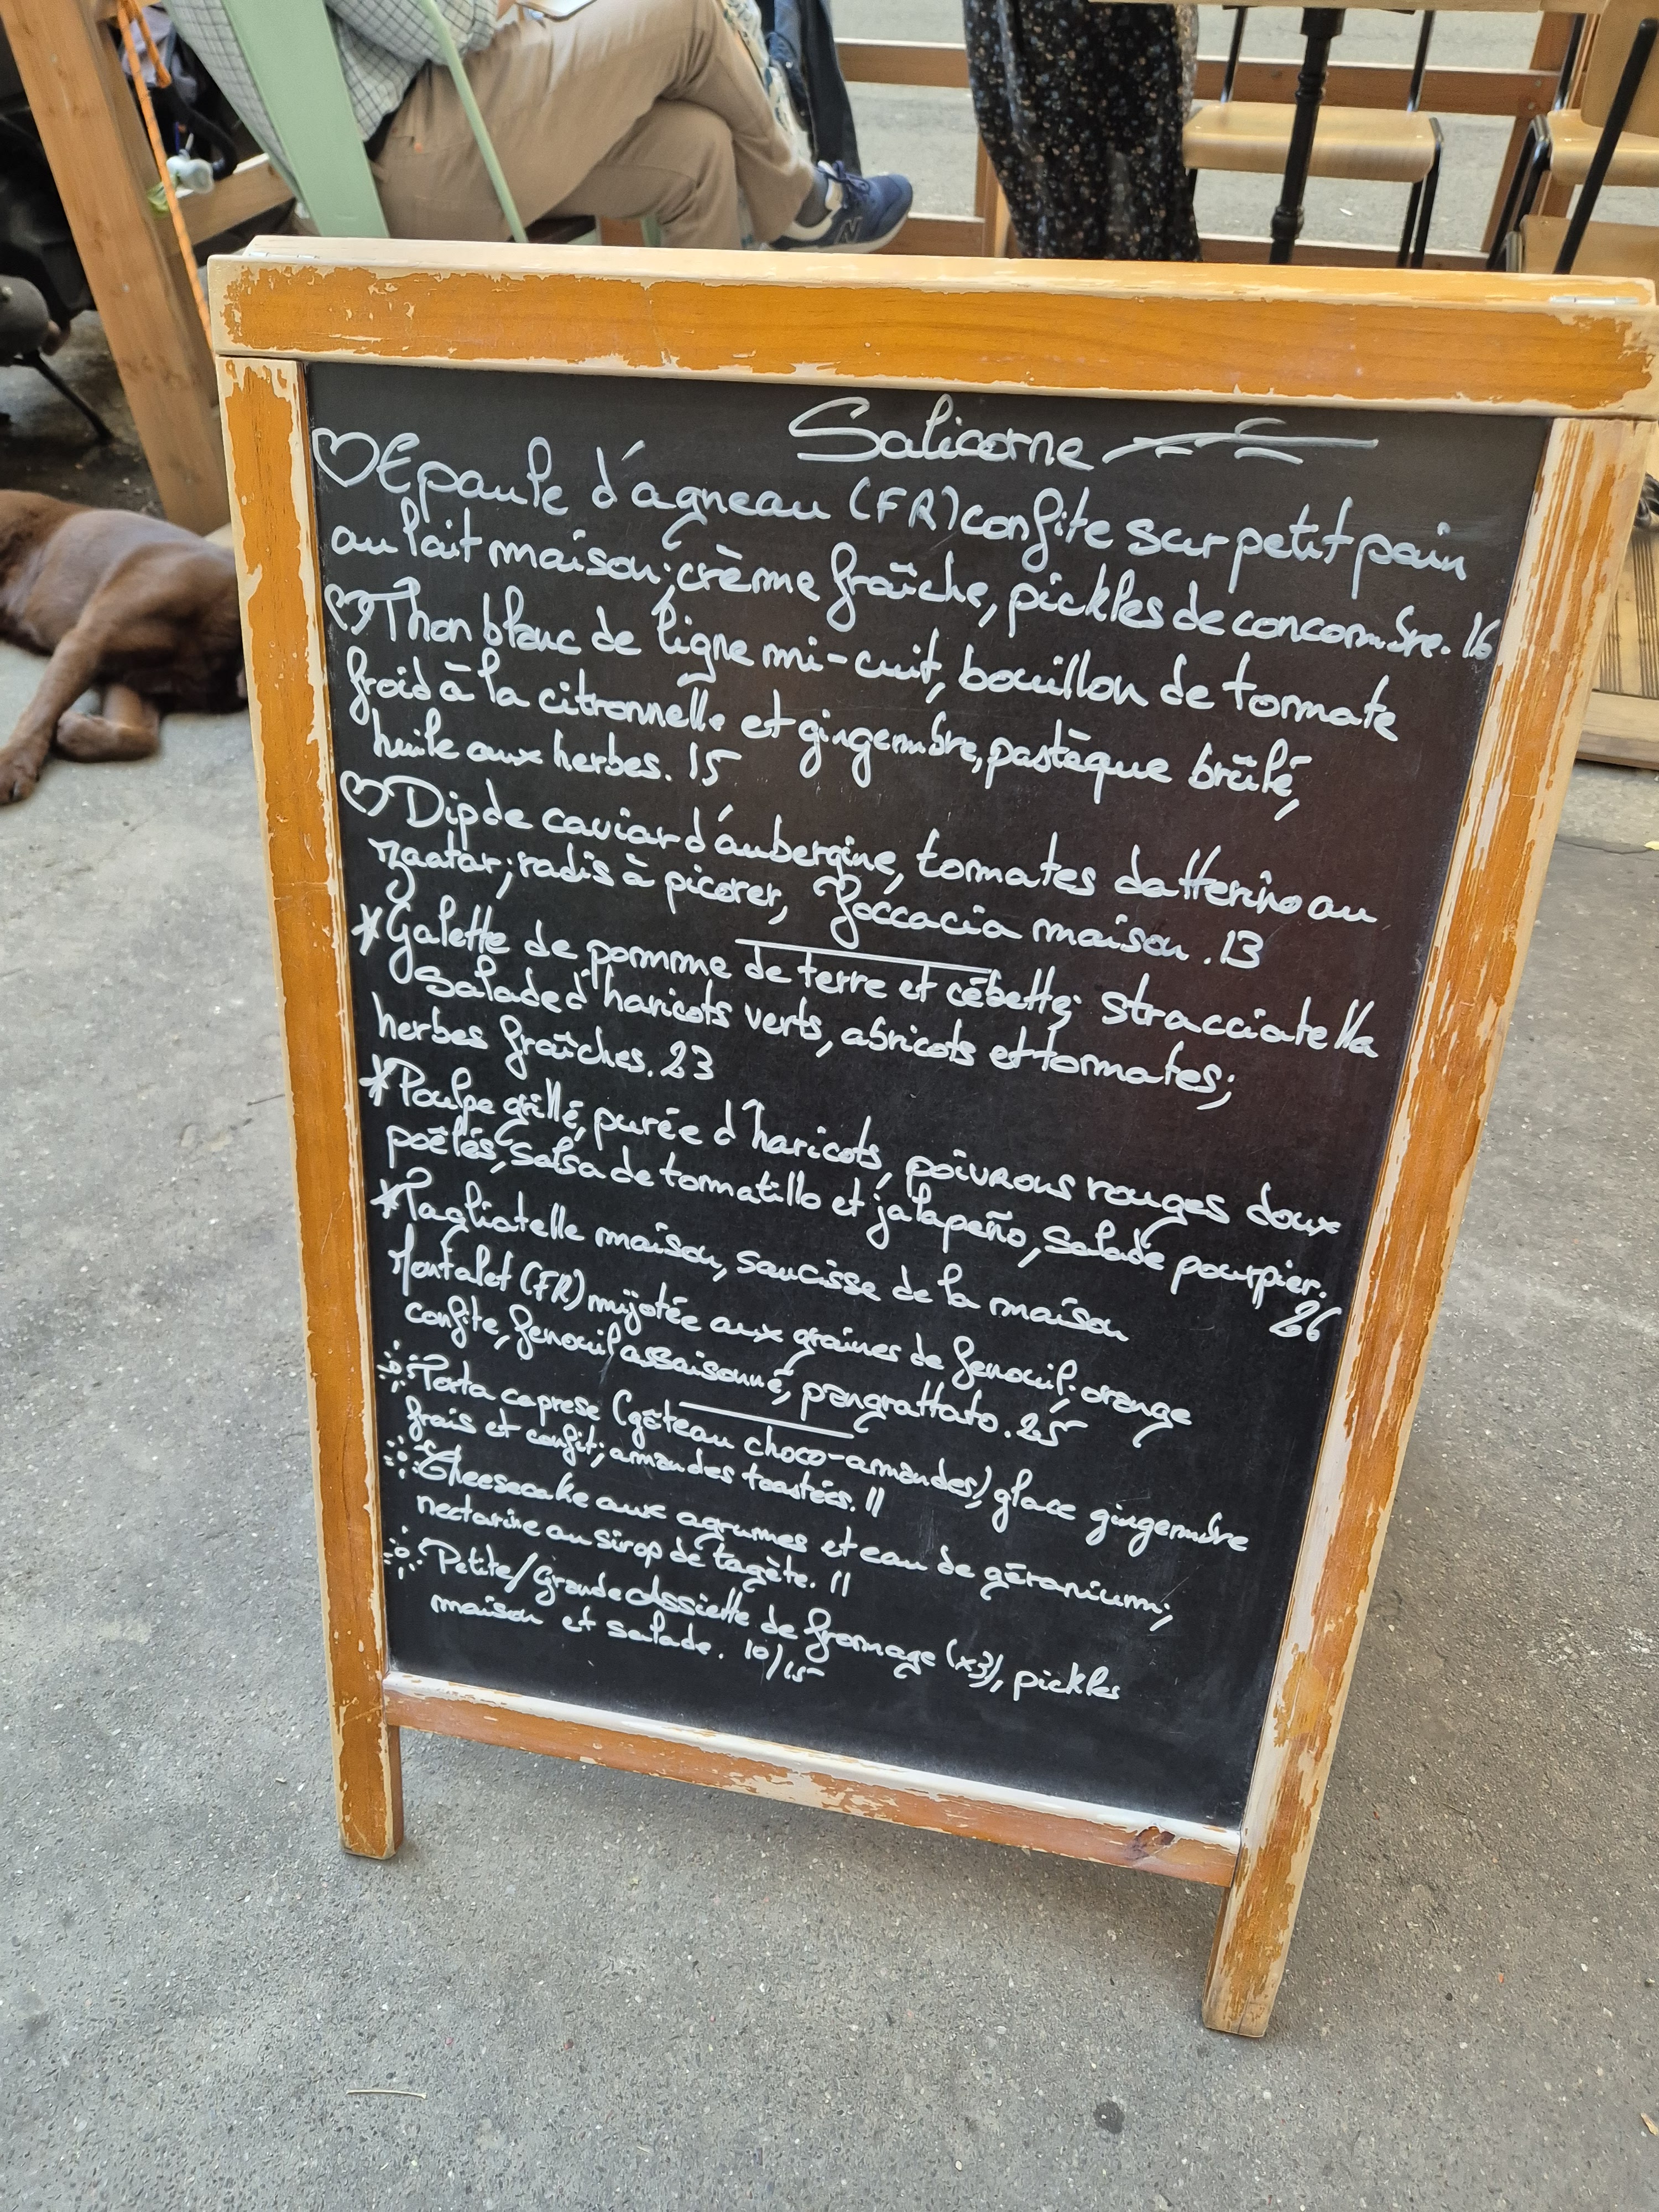 Salicorne
Epaule d'agneau (FR) confite sur petit pain
au lait maison; crème fraîche, pickles de concombre. 16
Thon blanc de ligne mi-cuit, bouillon de tomate
froid à la citronnelle et gingembre, pastèque brûlé,
huile aux herbes. 15
Dip de caviar d'aubergine, tomates datterino au
zaatar; radis à picorer, Foccacia maison. 13
* Galette de pomme de terre et cébette; stracciatella
salade d'haricots verts, abricots et tomates;
herbes fraîches. 23
* Poulpe grillé, purée d'haricots, poivrons rouges doux
poêlés, salsa de tomatillo et jalapeño, salade pourpier.
26
* Tagliatelle maison, saucisse de la maison
Montalet (FR) mijotée aux graines de fenouil, orange
confite, fenouil assaisonné, pangrattato. 25
Torta caprese (gâteau choco-amandes) glace gingembre
frais et confit; amandes toastées. 11
Cheesecake aux agrumes et eau de géranium;
nectarine au sirop de tagète. 11
Petite/Grande Assiette de fromage (x3), pickles
maison et salade. 10/15
N